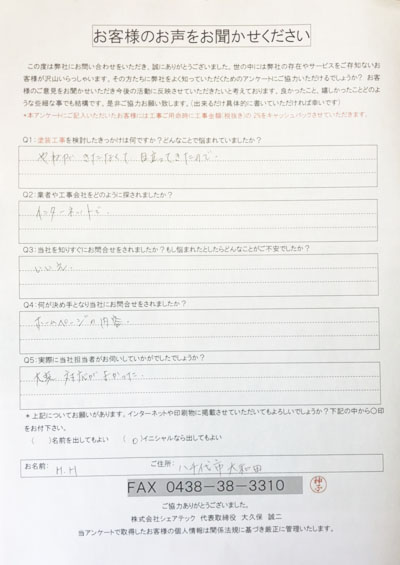 お客様のお声をお聞かせください
この度は弊社にお問い合わせをいただき、誠にありがとうございました。世の中には弊社の存在やサービスをご存知ないお
客様が沢山いらっしゃいます。その方たちに弊社をよく知っていただくためのアンケートにご協力いただけるでしょうか? お客
様のご意見をお聞かせいただき今後の活動に反映させていただきたいと考えております。良かったこと、嬉しかったことどのよ
うな些細な事でも結構です。是非ご協力お願い致します。(出来るだけ具体的に書いていただければ幸いです)
*本アンケートにご記入いただいたお客様には工事ご用命時に工事金額(税抜き)の2%をキャッシュバックさせていただきます。
Q1:塗装工事を検討したきっかけは何ですか?どんなことで悩まれていましたか?
きたなくて 目立ってきたので。
Q2:業者や工事会社をどのように探されましたか?
インターネットで
Q3:当社を知りすぐにお問合せをされましたか?もし悩まれたとしたらどんなことがご不安でしたか?
Q4:何が決め手となり当社にお問合せをされましたか?
ホームページの内容。
Q5:実際に当社担当者がお伺いしていかがでしたでしょうか?
大変 対応がよかった。
*上記についてお願いがあります。インターネットや印刷物に掲載させていただいてもよろしいでしょうか?下記の中から〇印
をお付下さい。
( )名前を出してもよい (○)イニシャルなら出してもよい
お名前: M.M ご住所: 八千代市大和田
FAX 0438-38-3310
ご協力ありがとうございました。
株式会社シェアテック 代表取締役 大久保 誠二
当アンケートで取得したお客様の個人情報は関係法規に基づき厳正に管理いたします。